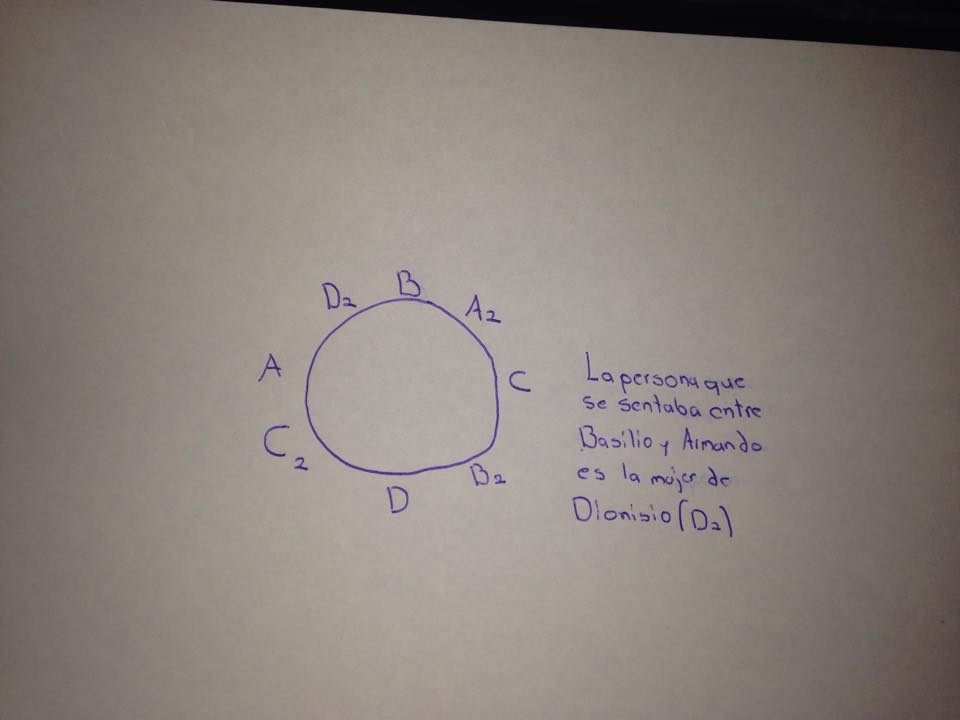 B
D2
A2
A
C
C2
B2
D
La persona que
se sentaba entre
Basilio y Armando
es la mujer de
Dionisio (D2)